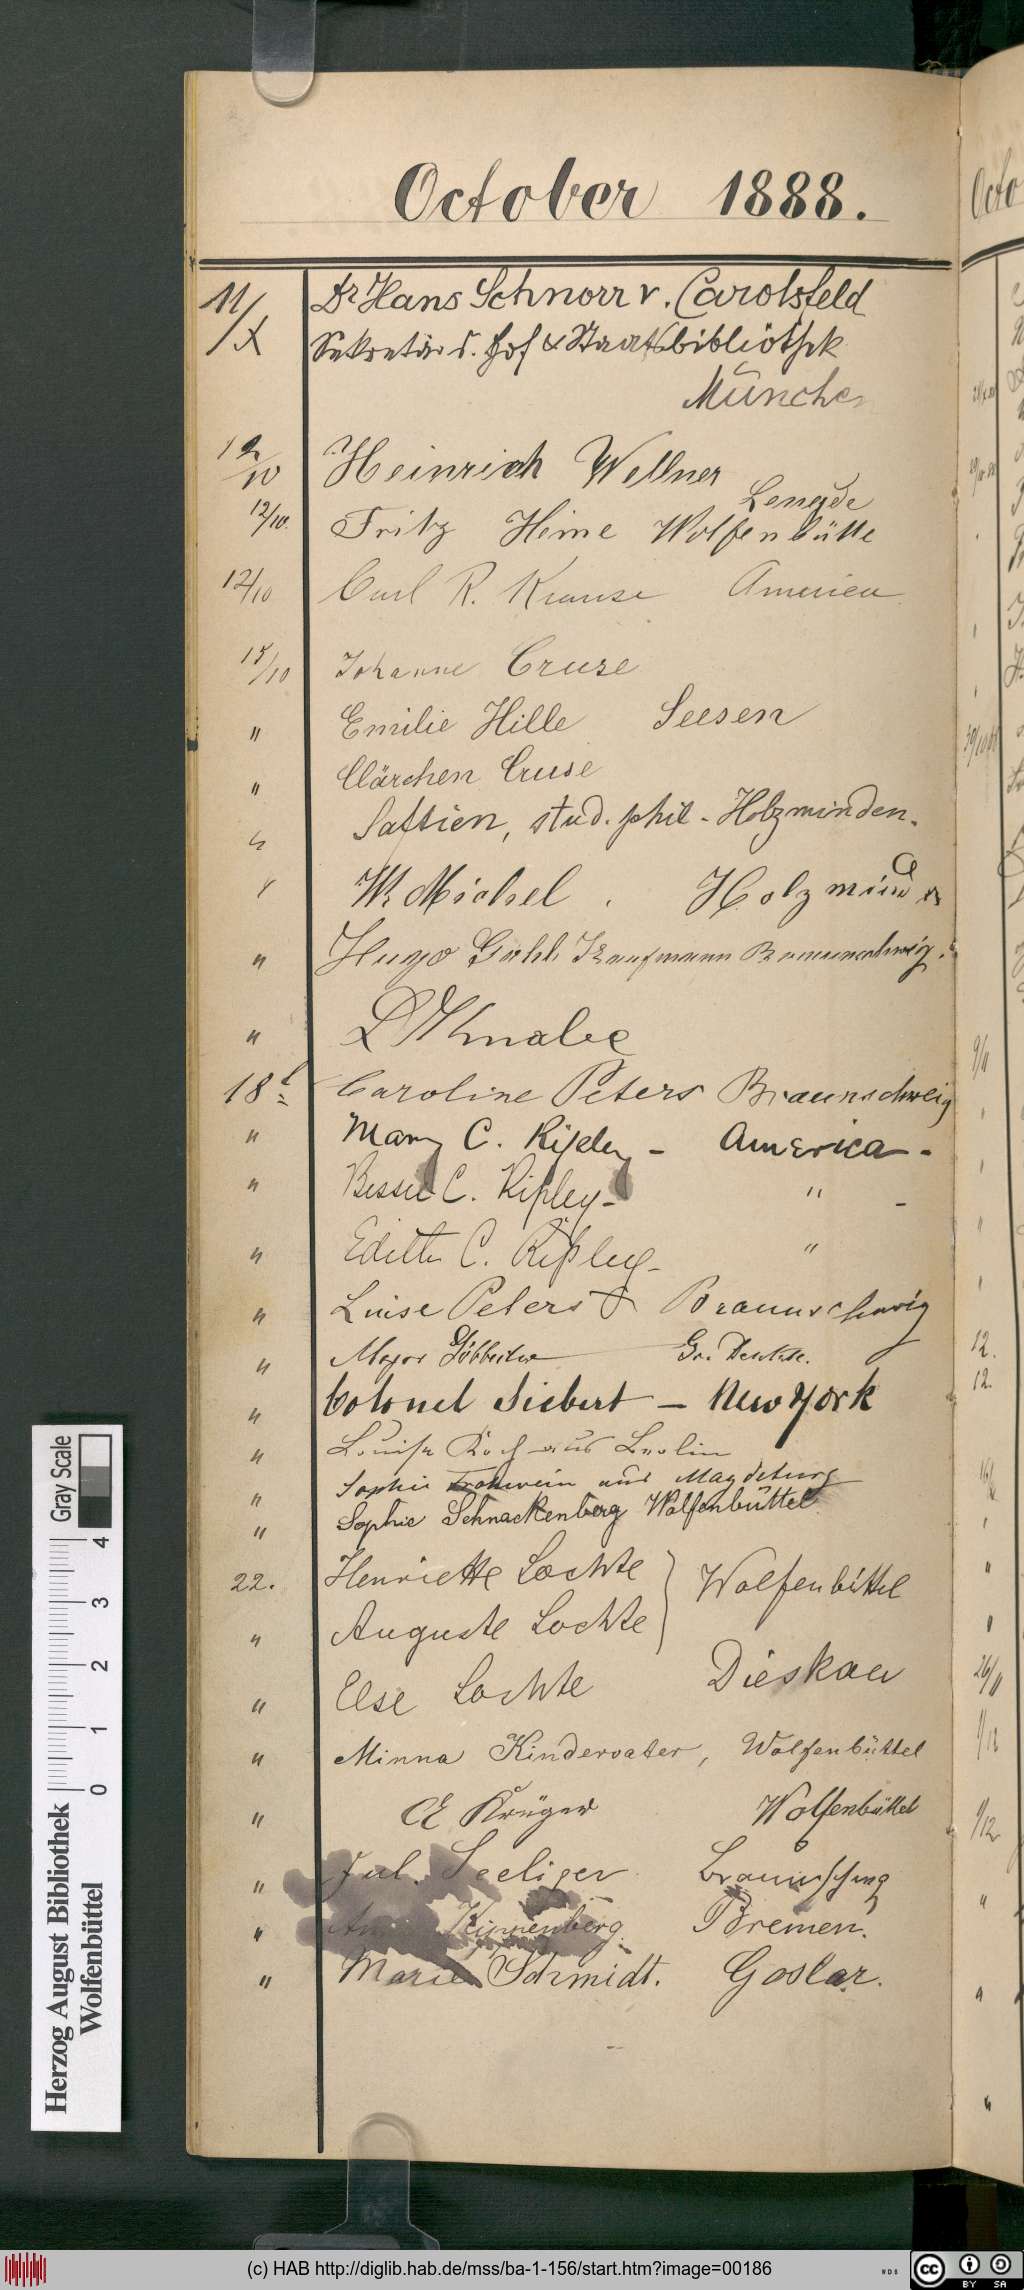 October 1888.
11/X Dr Hans Schnorr v. Carolsfeld
Sekretär d. Hof & Staatsbibliothek
München
12/10 Heinrich Wellner
Lengde
12/10. Fritz Heine Wolfenbütte
12/10 Carl R. Krause America
15/10 Johanne Cruse
" Emilie Hille Seesen
" Clärchen Cruse
" Saftien, stud. phil. Holzminden.
" W. Michel Holzminden
" Hugo Kaufmann Braunschweig.
"
18t Caroline Peters Braunschweig
" Mary C. Ripley - America -
" Bessie C. Ripley - " -
" Edith C. Ripley - "
" Luise Peters Braunschweig
" Major Gr. Denkte.
" Colonel Siebert - New York
" Louise Koch aus Berlin
" Sophie Frohwein aus Magdeburg
" Sophie Schnackenberg Wolfenbüttel
22. Henriette Lochte
Wolfenbüttel
" Auguste Lochte
" Else Lochte Dieskau
" Minna Kindervater, Wolfenbüttel
" Krüger Wolfenbüttel
" Jul. Seeliger Braunschwg
" Kippenberg. Bremen.
" Marie Schmidt. Goslar.
Gray Scale
0 1 2 3 4
Herzog August Bibliothek
Wolfenbüttel
(c) HAB http://diglib.hab.de/mss/ba-1-156/start.htm?image=00186
cc BY SA